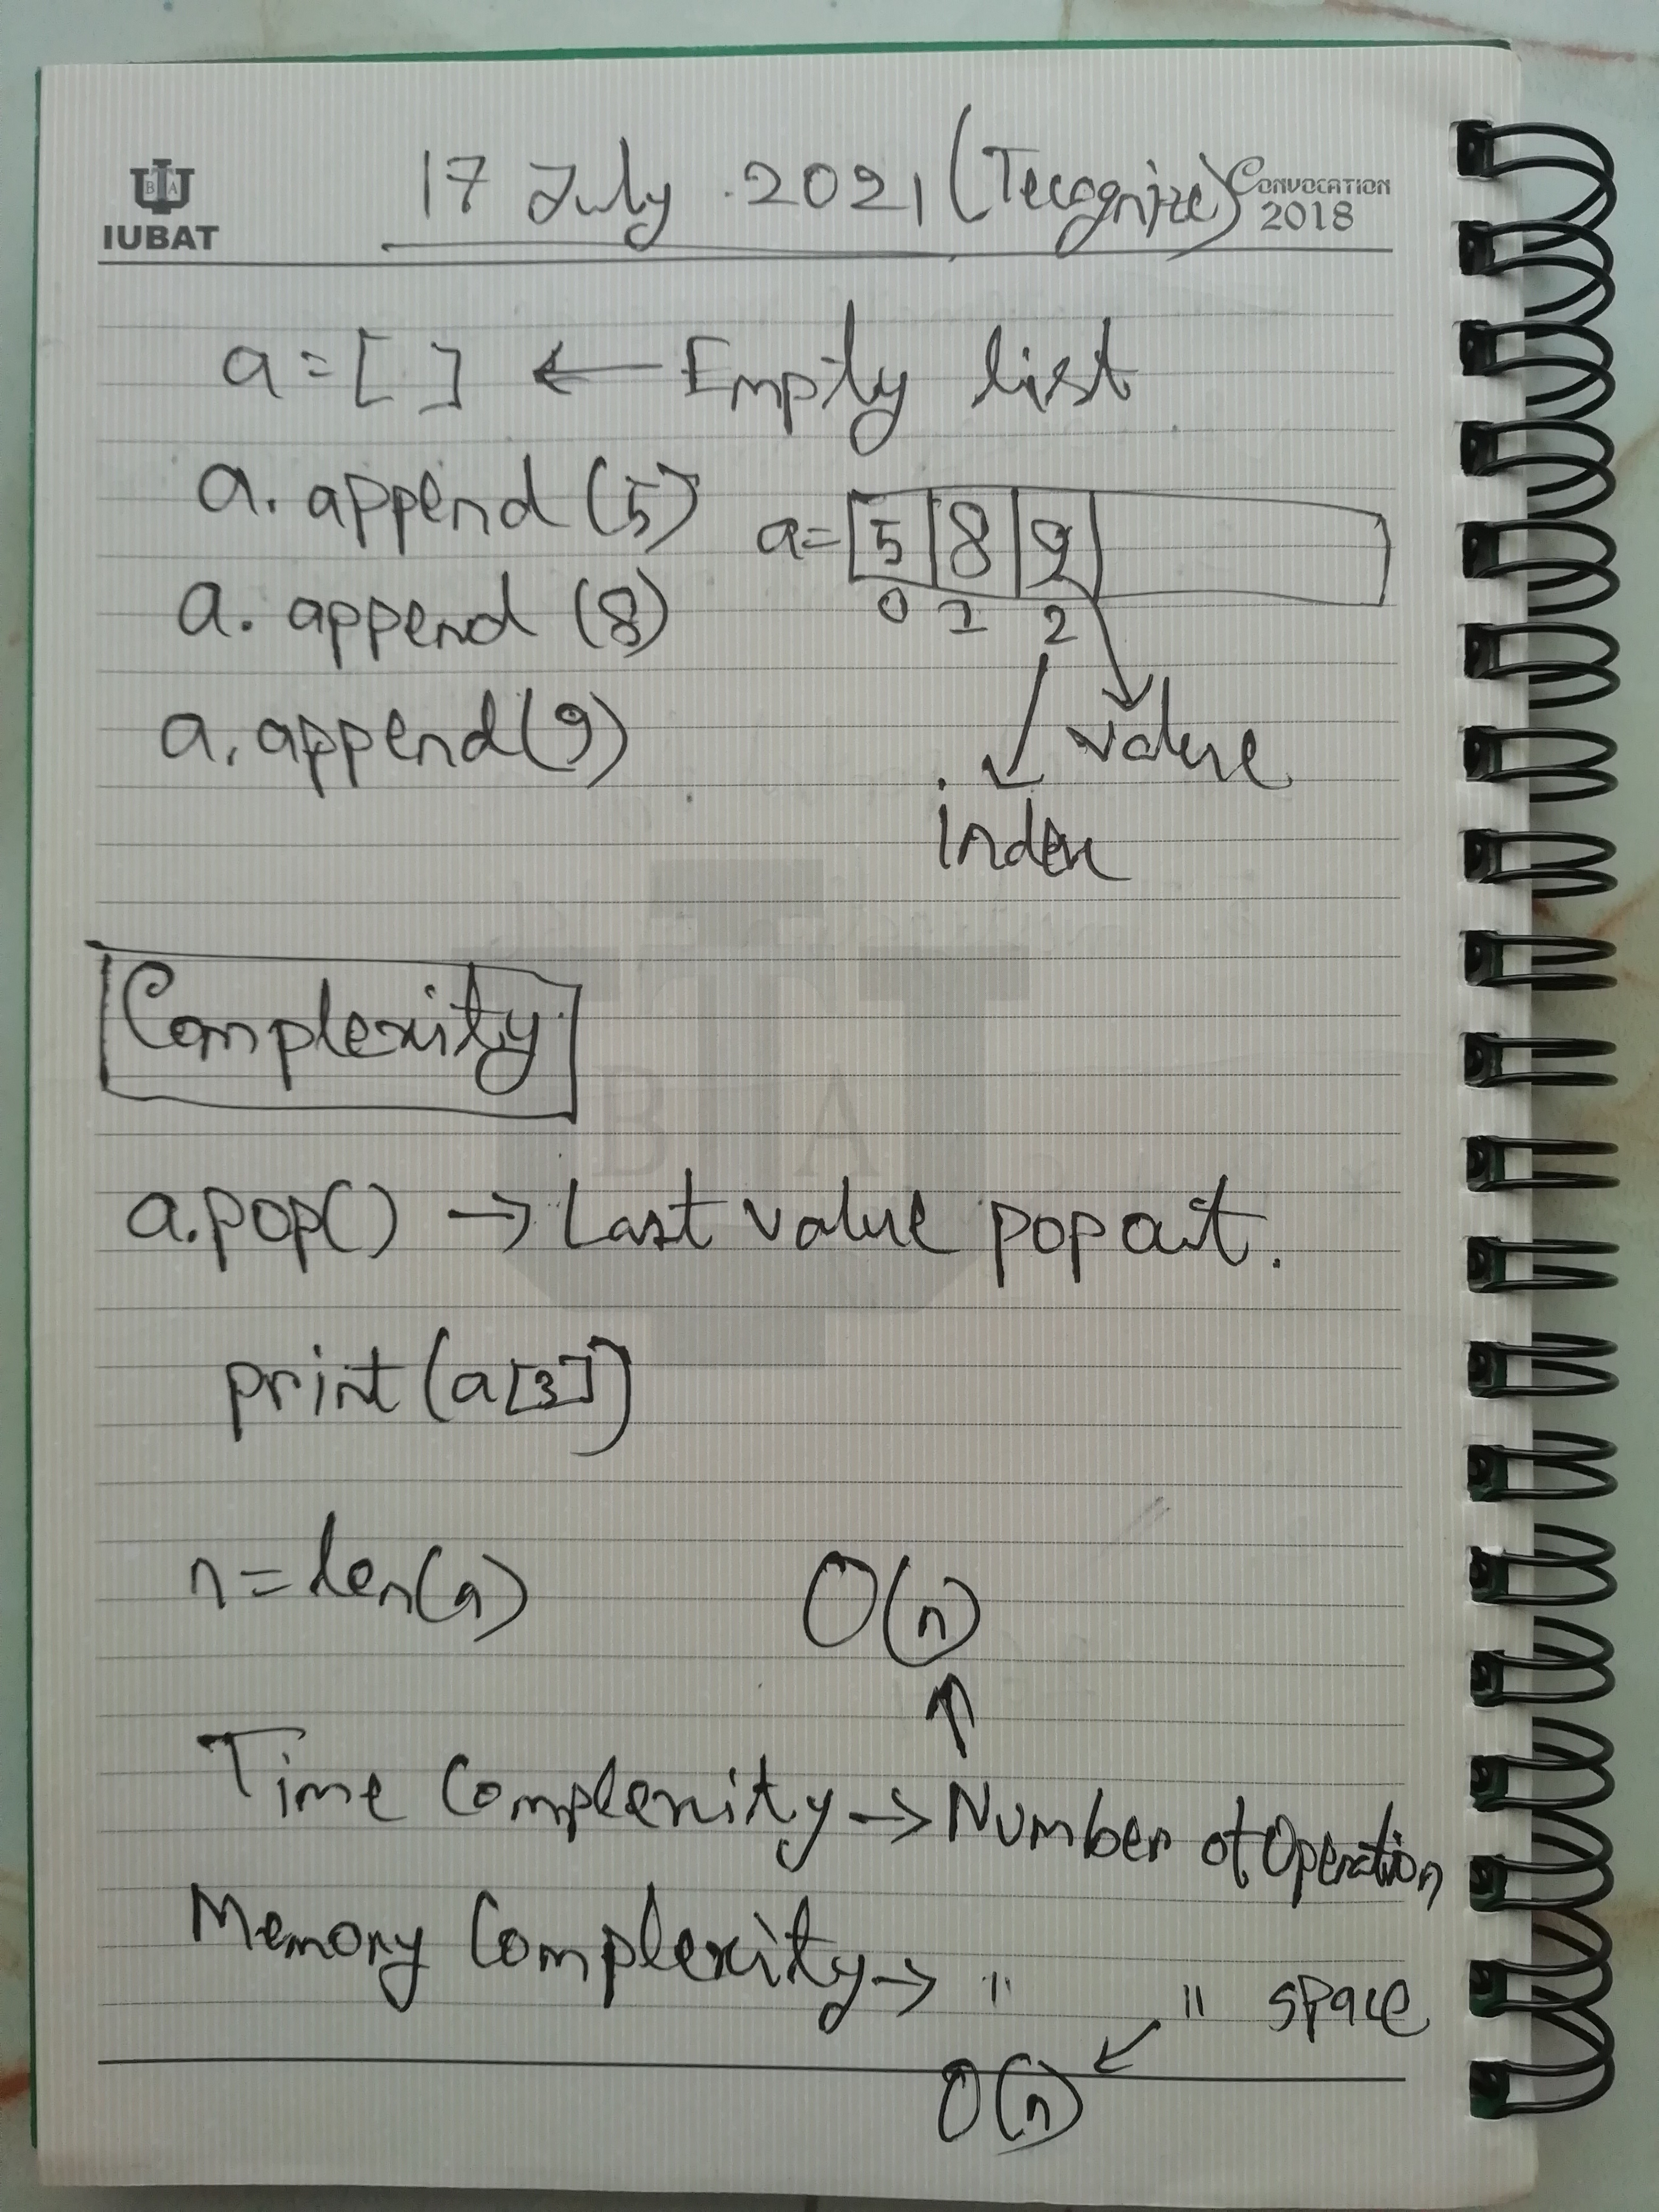 BIA
IUBAT
17 July 2021 (Tecognize)
CONVOCATION
2018
a = [ ] ← Empty list
a. append (5)
a = 5 8 9
0 1 2
a. append (8)
a. append (9)
value
index
Complexity
a.pop() → Last value pop out.
print (a[3])
n = len(a)
O(n)
↑
Time Complexity → Number of Operation
Memory Complexity → " " space
O(n)